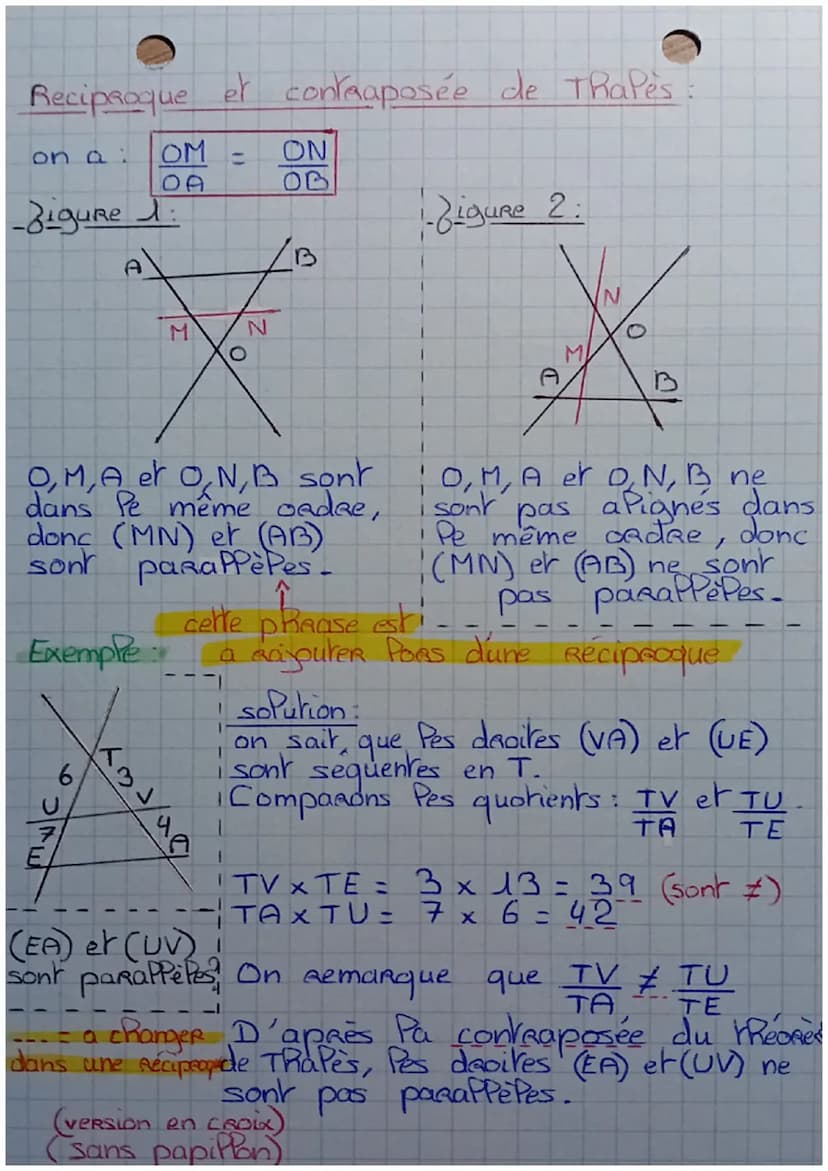 Reciproque et contraposée de Thalès :
on a : OM/OA = ON/OB
- figure 1 :
A B
M N
O
O, M, A et O, N, B sont
dans le même ordre,
donc (MN) et (AB)
sont parallèles.
- figure 2 :
N
O
M
A B
O, M, A et O, N, B ne
sont pas alignés dans
le même ordre, donc
(MN) et (AB) ne sont
pas parallèles.
↑
cette phrase est
a rajouter lors d'une réciproque
Exemple :
T
6 3
U V
7 4
E A
(EA) et (UV)
sont parallèles?
solution :
on sait que les droites (VA) et (UE)
sont séquentes en T.
Comparons les quotients : TV/TA et TU/TE.
TV x TE = 3 x 13 = 39 (sont ≠)
TA x TU = 7 x 6 = 42
On remarque que TV/TA ≠ TU/TE
D'après la contraposée du théorè
de Thalès, les droites (EA) et (UV) ne
sont pas parallèles.
... = a changer
dans une réciproque
(version en croix)
(sans papillon)